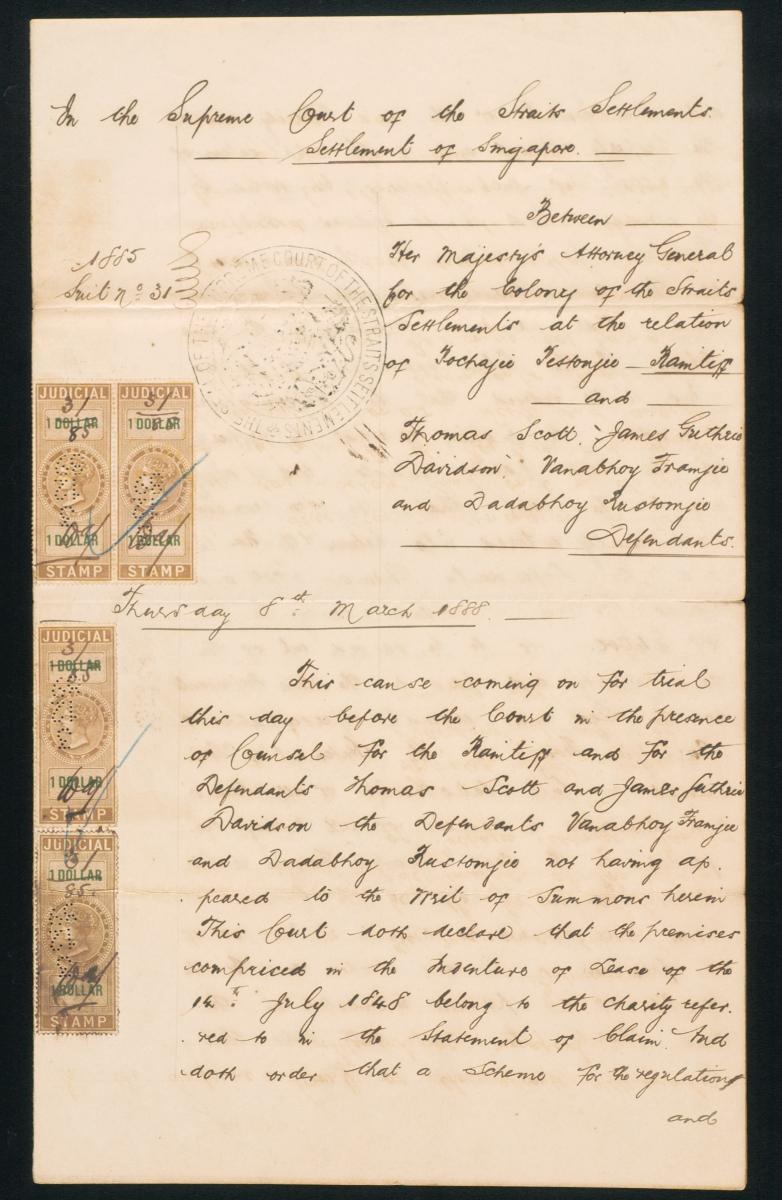 In the Supreme Court of the Straits Settlements.
Settlement of Singapore.
Between
1885
Suit no. 31
Her Majesty's Attorney General
for the Colony of the Straits
Settlements at the relation
of Kochajee Pestonjee Plaintiff
and
Thomas Scott, James Guthrie
Davidson Vanabhoy Framjee
and Dadabhoy Rustomjee
Defendants.
THE SEAL OF THE SUPREME COURT OF THE STRAITS SETTLEMENTS
JUDICIAL
31/85
1 DOLLAR
1 DOLLAR
STAMP
JUDICIAL
31/85
1 DOLLAR
1 DOLLAR
STAMP
Thursday 8th March 1888.
JUDICIAL
31/85
1 DOLLAR
1 DOLLAR
JUDICIAL
31/85.
1 DOLLAR
1 DOLLAR
STAMP
This cause coming on for trial
this day before the Court in the presence
of Counsel for the Plaintiff and for the
Defendants Thomas Scott and James Guthrie
Davidson the Defendants Vanabhoy Framjee
and Dadabhoy Rustomjee not having ap.
.peared to the Writ of Summons herein
This Court doth declare that the premises
comprised in the Indenture of Lease of the
14th July 1848 belong to the charity refer.
.red to in the Statement of Claim And
doth order that a Scheme for the regulation
and